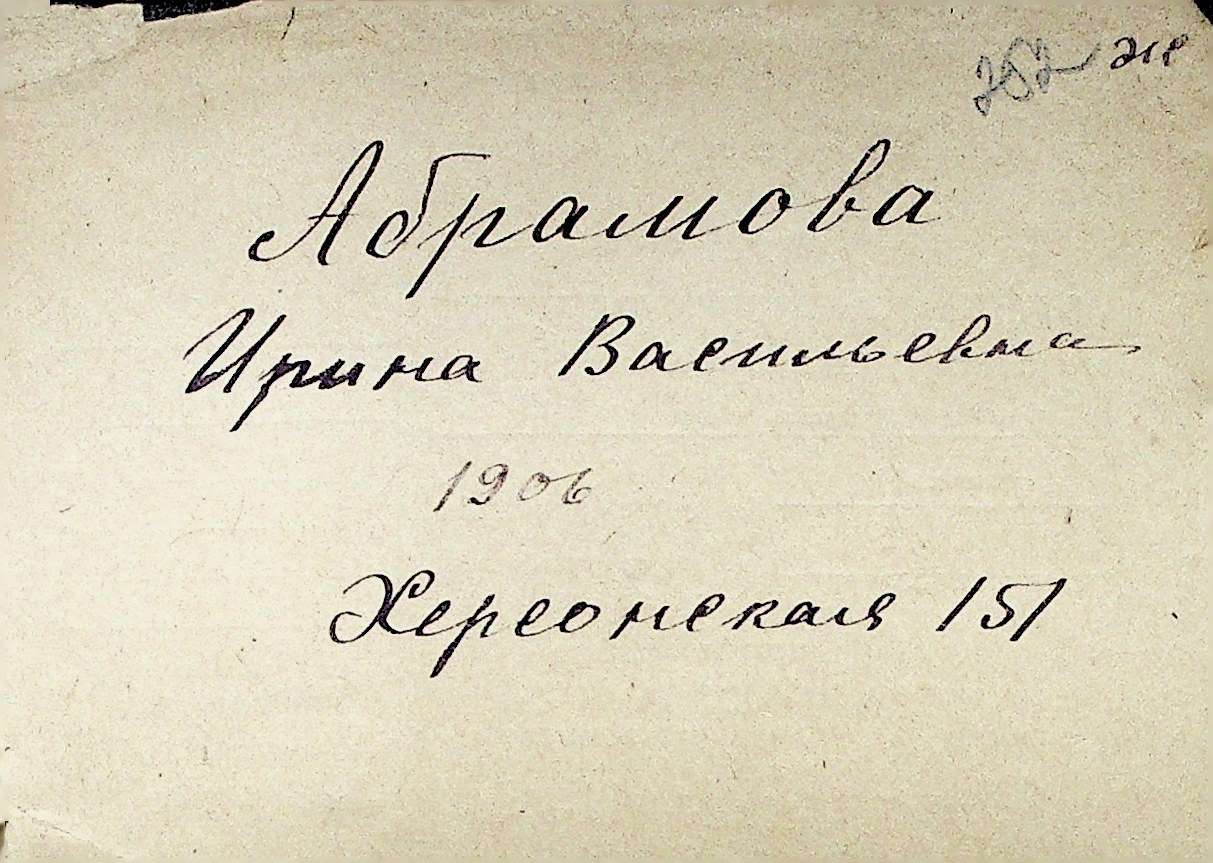 Абрамова
Ирина Васильевна
1906
Херсонская 151